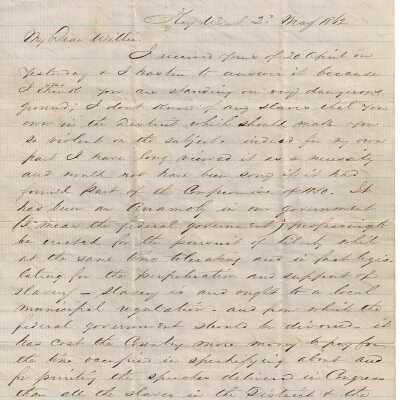 Key West 2d May 1862
My Dear Walter
I received yours of 20 April on
yesterday & I hasten to answer it because
I think you are standing on very dangerous
ground; I dont know of any slaves that you
own in the District which should make you
so violent on the subject indeed for my own
part I have long viewed it as a necessity
and would not have been sorry if it had
formed part of the Compromise of 1850. It
has been an Anamoly in our government
(I mean the federal government) professingly
be created for the pursuit of liberty while
at the same time tolerating and in fact legis
lating for the perpetuation and support of
slavery – slavery is and ought to a local
municipal regulation – and from which the
federal government should be divorced – it
has cost the Country more money to pay for
the time occupied in speechifying about and
for printing the speeches delivered in Congress
than all the slaves in the District & the